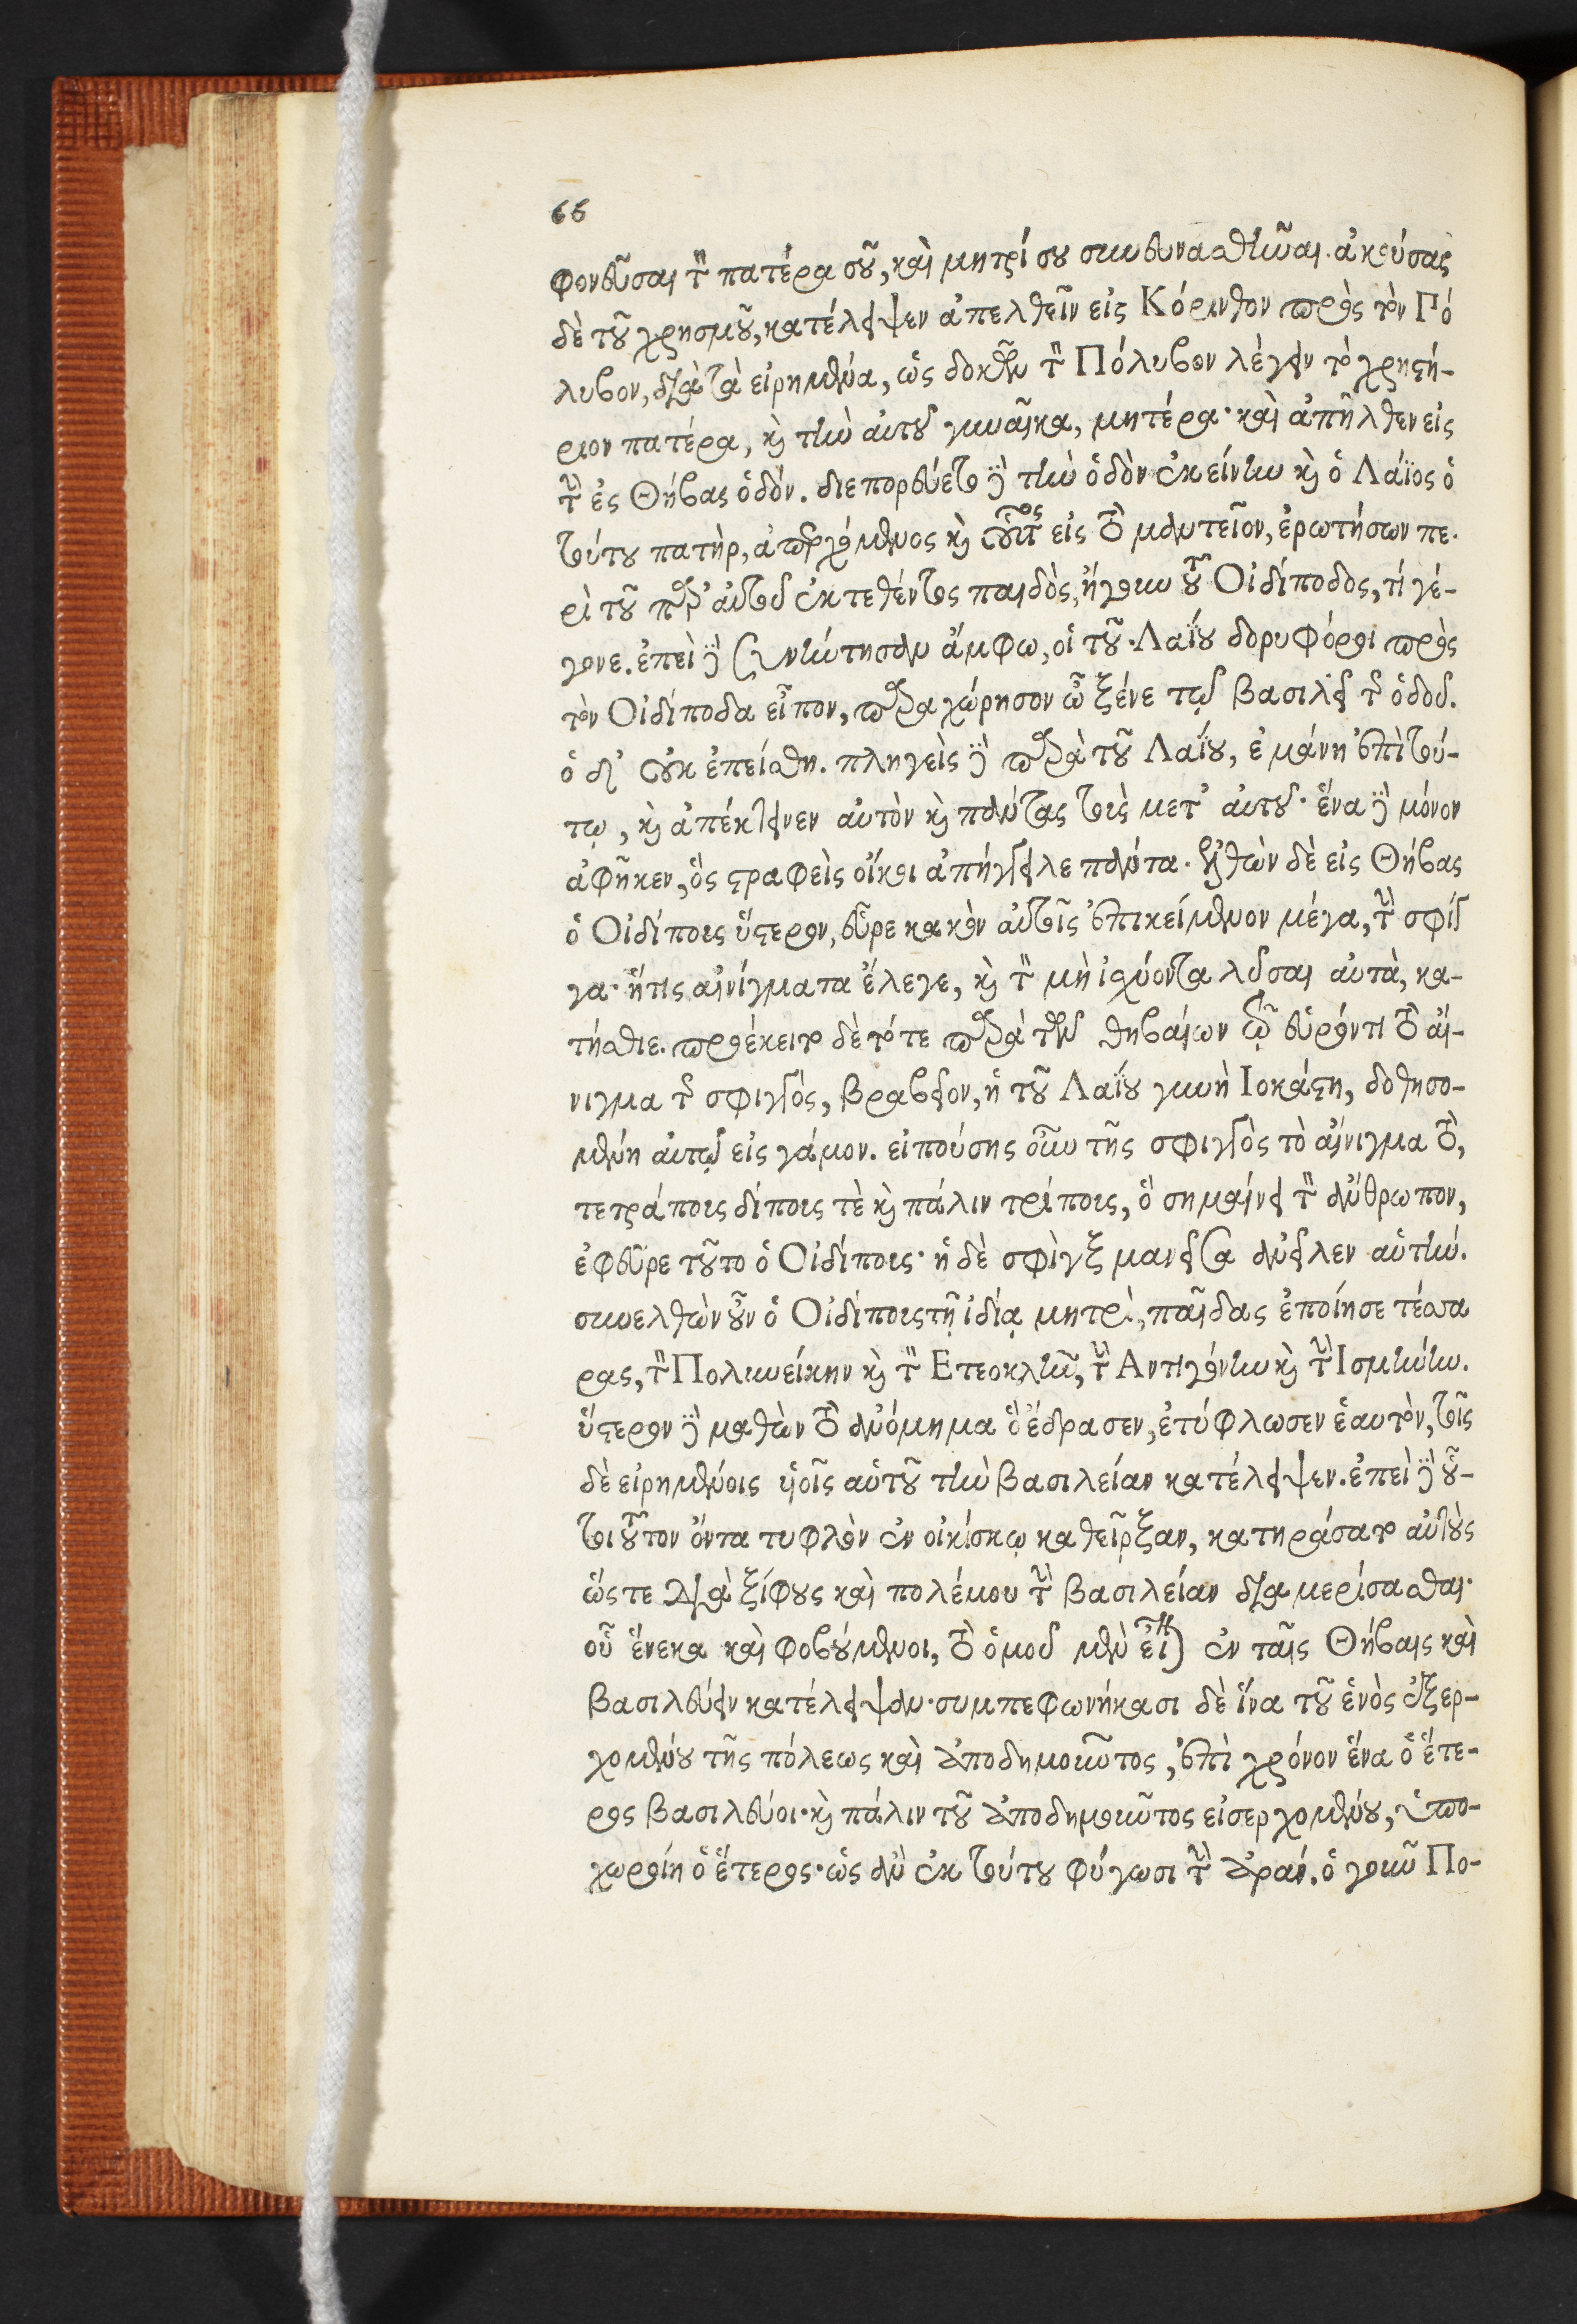 66
φονεῦσαι τὸν πατέρα σοῦ, καὶ μητρί σου συνευνασθῆναι. ἀκούσας
δὲ τοῦ χρησμοῦ, κατέλειψεν ἀπελθεῖν εἰς Κόρινθον πρὸς τὸν Πό
λυβον, διὰ τὰ εἰρημένα, ὡς δοκῶν τὸν Πόλυβον λέγειν τὸ χρηστή-
ριον πατέρα, καὶ τὴν αὐτοῦ γυναῖκα, μητέρα· καὶ ἀπῆλθεν εἰς
τὴν ἐς Θήβας ὁδόν. διεπορεύετο δὲ τὴν ὁδὸν ἐκείνην καὶ ὁ Λάϊος ὁ
τούτου πατὴρ, ἀπερχόμενος καὶ οὗτος εἰς τὸ μαντεῖον, ἐρωτήσων πε-
ρὶ τοῦ παρ' αὐτοῦ ἐκτεθέντος παιδὸς, ἤγουν τοῦ Οἰδίποδος, τί γέ-
γονε. ἐπεὶ δὲ συνήντησαν ἄμφω, οἱ τοῦ Λαΐου δορυφόροι πρὸς
τὸν Οἰδίποδα εἶπον, παραχώρησον ὦ ξένε τῷ βασιλεῖ τῆς ὁδοῦ.
ὁ δ' οὐκ ἐπείσθη. πληγεὶς δὲ παρὰ τοῦ Λαΐου, ἐμάνη ἐπὶ τού-
τῳ, καὶ ἀπέκτεινεν αὐτὸν καὶ πάντας τοὺς μετ' αὐτοῦ· ἕνα δὲ μόνον
ἀφῆκεν, ὃς στραφεὶς οἴκοι ἀπήγγειλε πάντα. ἐλθὼν δὲ εἰς Θήβας
ὁ Οἰδίπους ὕστερον, εὗρε κακὸν αὐτοῖς ἐπικείμενον μέγα, τὴν σφίγ
γα· ἥτις αἰνίγματα ἔλεγε, καὶ τὸν μὴ ἰσχύοντα λῦσαι αὐτὰ, κα-
τήσθιε. προέκειτο δὲ τότε παρὰ τῶν θηβαίων τῷ εὑρόντι τὸ αἴ-
νιγμα τῆς σφιγγὸς, βραβεῖον, ἡ τοῦ Λαΐου γυνὴ Ιοκάστη, δοθησο-
μένη αὐτῷ εἰς γάμον. εἰπούσης οὖν τῆς σφιγγὸς τὸ αἴνιγμα τὸ,
τετράπους δίπους τὲ καὶ πάλιν τρίπους, ὃ σημαίνει τὸν ἄνθρωπον,
ἐφεῦρε τοῦτο ὁ Οἰδίπους· ἡ δὲ σφὶγξ μανεῖσα ἀνεῖλεν αὑτήν.
συνελθὼν οὖν ὁ Οἰδίπους τῇ ἰδίᾳ μητρὶ, παῖδας ἐποίησε τέσσα
ρας, τὸν Πολυνείκην καὶ τὸν Ετεοκλῆν, τὴν Αντιγόνην καὶ τὴν Ισμήνην.
ὕστερον δὲ μαθὼν τὸ ἀνόμημα ὃ ἔδρασεν, ἐτύφλωσεν ἑαυτὸν, τοῖς
δὲ εἰρημένοις υἱοῖς αὑτοῦ τὴν βασιλείαν κατέλειψεν. ἐπεὶ δὲ οὗ-
τοι τοῦτον ὄντα τυφλὸν ἐν οἰκίσκῳ καθεῖρξαν, κατηράσατο αὐτοὺς
ὥστε διὰ ξίφους καὶ πολέμου τὴν βασιλείαν διαμερίσασθαι·
οὗ ἕνεκα καὶ φοβούμενοι, τὸ ὁμοῦ μὲν εἶναι ἐν ταῖς Θήβαις καὶ
βασιλεύειν κατέλειψαν· συμπεφωνήκασι δὲ ἵνα τοῦ ἑνὸς ἐξερ-
χομένου τῆς πόλεως καὶ ἀποδημοῦντος, ἐπὶ χρόνον ἕνα ὁ ἕτε-
ρος βασιλεύοι· καὶ πάλιν τοῦ ἀποδημοῦντος εἰσερχομένου, ὑπο-
χωροίη ὁ ἕτερος· ὡς ἂν ἐκ τούτου φύγωσι τὴν ἀράν. ὁ γοῦν Πο-